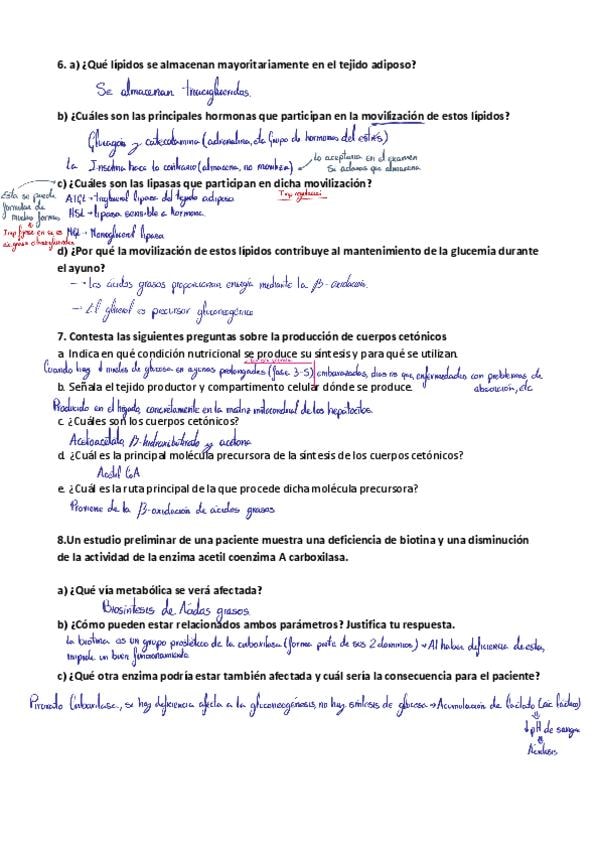 6. a) ¿Qué lípidos se almacenan mayoritariamente en el tejido adiposo?
Se almacenan triacilglicéridos.
b) ¿Cuáles son las principales hormonas que participan en la movilización de estos lípidos?
Glucagón y catecolamina (adrenalina, etc Grupo de hormonas del estrés)
La Insulina hace lo contrario (almacena, no moviliza)
Lo aceptaría en el examen
Si aclaras que almacena
c) ¿Cuáles son las lipasas que participan en dicha movilización?
Esta se puede
formular de
muchas formas
ATGL → triglyceril lipasa del tejido adiposo
HSL → lipasa sensible a hormona
MGL → Monogliceril lipasa
d) ¿Por qué la movilización de estos lípidos contribuye al mantenimiento de la glucemia durante
el ayuno?
- Los ácidos grasos proporcionan energía mediante la β-oxidación.
- El glicerol es precursor gluconeogénico
7. Contesta las siguientes preguntas sobre la producción de cuerpos cetónicos
a Indica en qué condición nutricional se produce su síntesis y para qué se utilizan.
Cuando hay ↓ niveles de glucosa en ayunos prolongados (fase 3-5) embarazadas, enfermedades con problemas de
absorción, etc
b. Señala el tejido productor y compartimento celular dónde se produce.
Producido en el hígado, concretamente en la matriz mitocondrial de los hepatocitos.
c. ¿Cuáles son los cuerpos cetónicos?
Acetoacetato, β-hidroxibutirato y acetona
d. ¿Cuál es la principal molécula precursora de la síntesis de los cuerpos cetónicos?
Acetil CoA
e. ¿Cuál es la ruta principal de la que procede dicha molécula precursora?
Proviene de la β-oxidación de ácidos grasos
8.Un estudio preliminar de una paciente muestra una deficiencia de biotina y una disminución
de la actividad de la enzima acetil coenzima A carboxilasa.
a) ¿Qué vía metabólica se verá afectada?
Biosíntesis de Ácidos grasos.
b) ¿Cómo pueden estar relacionados ambos parámetros? Justifica tu respuesta.
La biotina es un grupo prostético de la carboxilasa (forma parte de sus 2 dominios) → Al haber deficiencia de esta,
impide un buen funcionamiento
c) ¿Qué otra enzima podría estar también afectada y cuál sería la consecuencia para el paciente?
Piruvato Carboxilasa, se hay deficiencia afecta a la gluconeogénesis, no hay síntesis de glucosa → Acumulación de lactato (ác láctico)
↓ pH de sangre
Acidosis